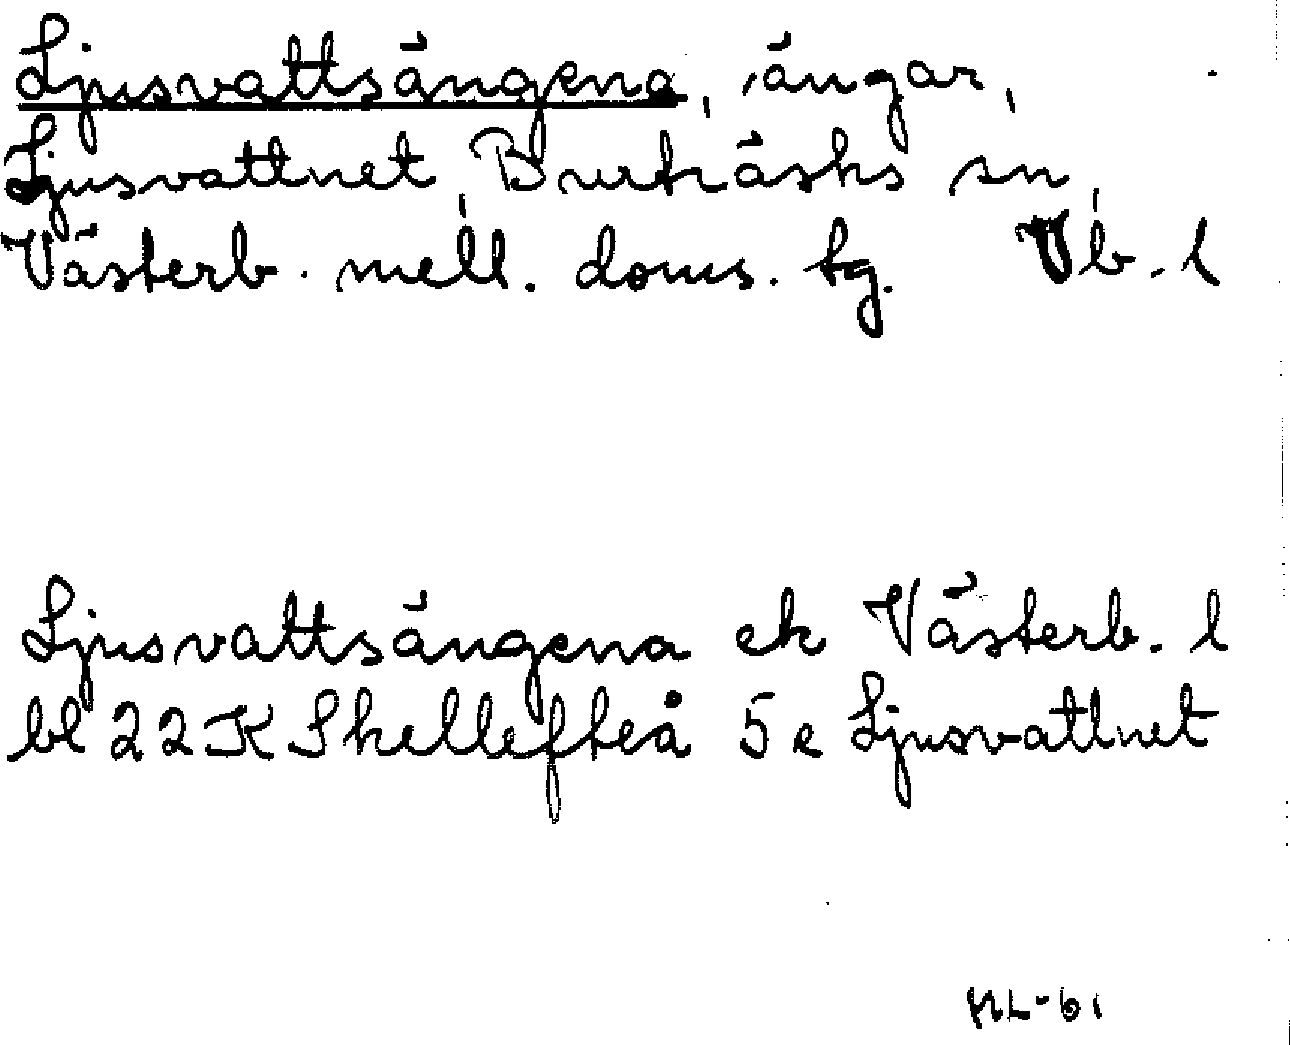 Ljusvattsängena, ängar,
Ljusvattnet, Burträsks sn,
Västerb. mell. doms. tg. Vb. l
Ljusvattsängena ek Västerb. l
bl 22K Skellefteå 5e Ljusvattnet